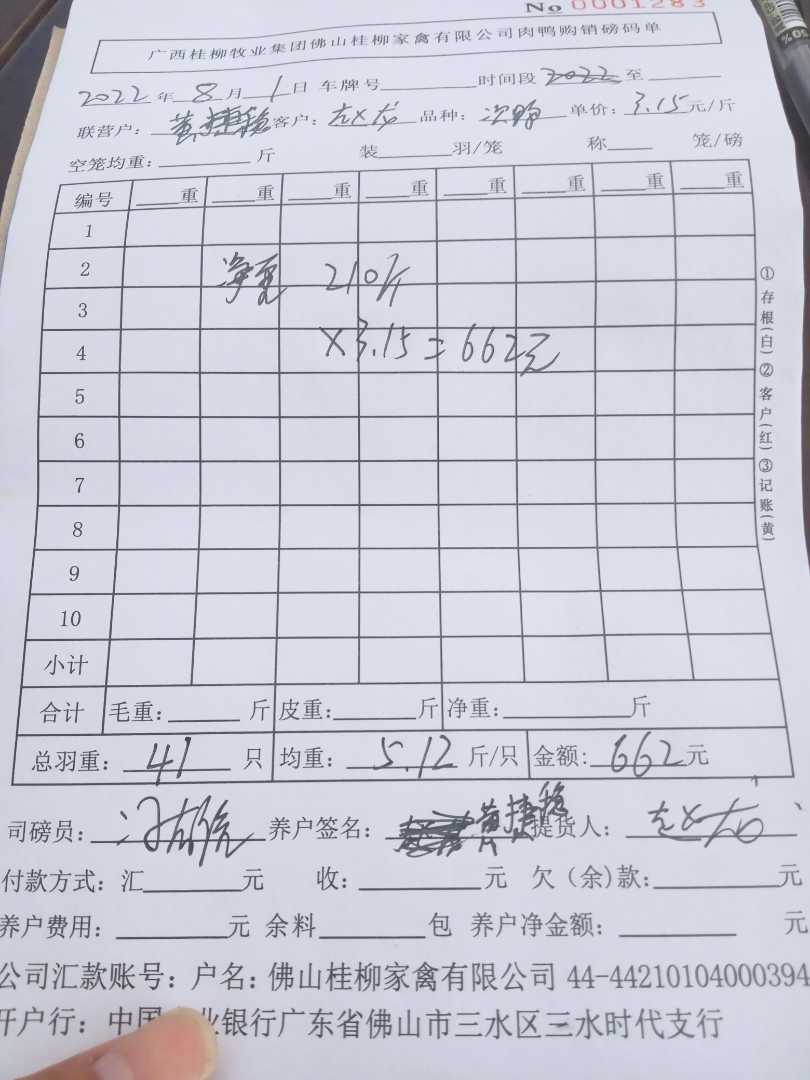 No 0001283
广西桂柳牧业集团佛山桂柳家禽有限公司肉鸭购销磅码单
2022年 8月 1日 车牌号 时间段 2022 至
联营户: 黄捷稳 客户: 品种: 次鸭 单价: 3.15元/斤
空笼均重: 斤 装 羽/笼 称 笼/磅
编号 重 重 重 重 重 重 重 重
1
2 净重 210斤
3
4 ×3.15=662元
5
6
7
8
9
10
小计
合计 毛重: 斤 皮重: 斤 净重: 斤
总羽重: 41 只 均重: 5.12 斤/只 金额: 662元
司磅员: 养户签名: 黄捷稳 提货人:
付款方式: 汇 元 收: 元 欠(余)款: 元
养户费用: 元 余料 包 养户净金额: 元
公司汇款账号: 户名: 佛山桂柳家禽有限公司 44-44210104000394
开户行: 中国 业银行广东省佛山市三水区三水时代支行
①存根(白)②客户(红)③记账(黄)